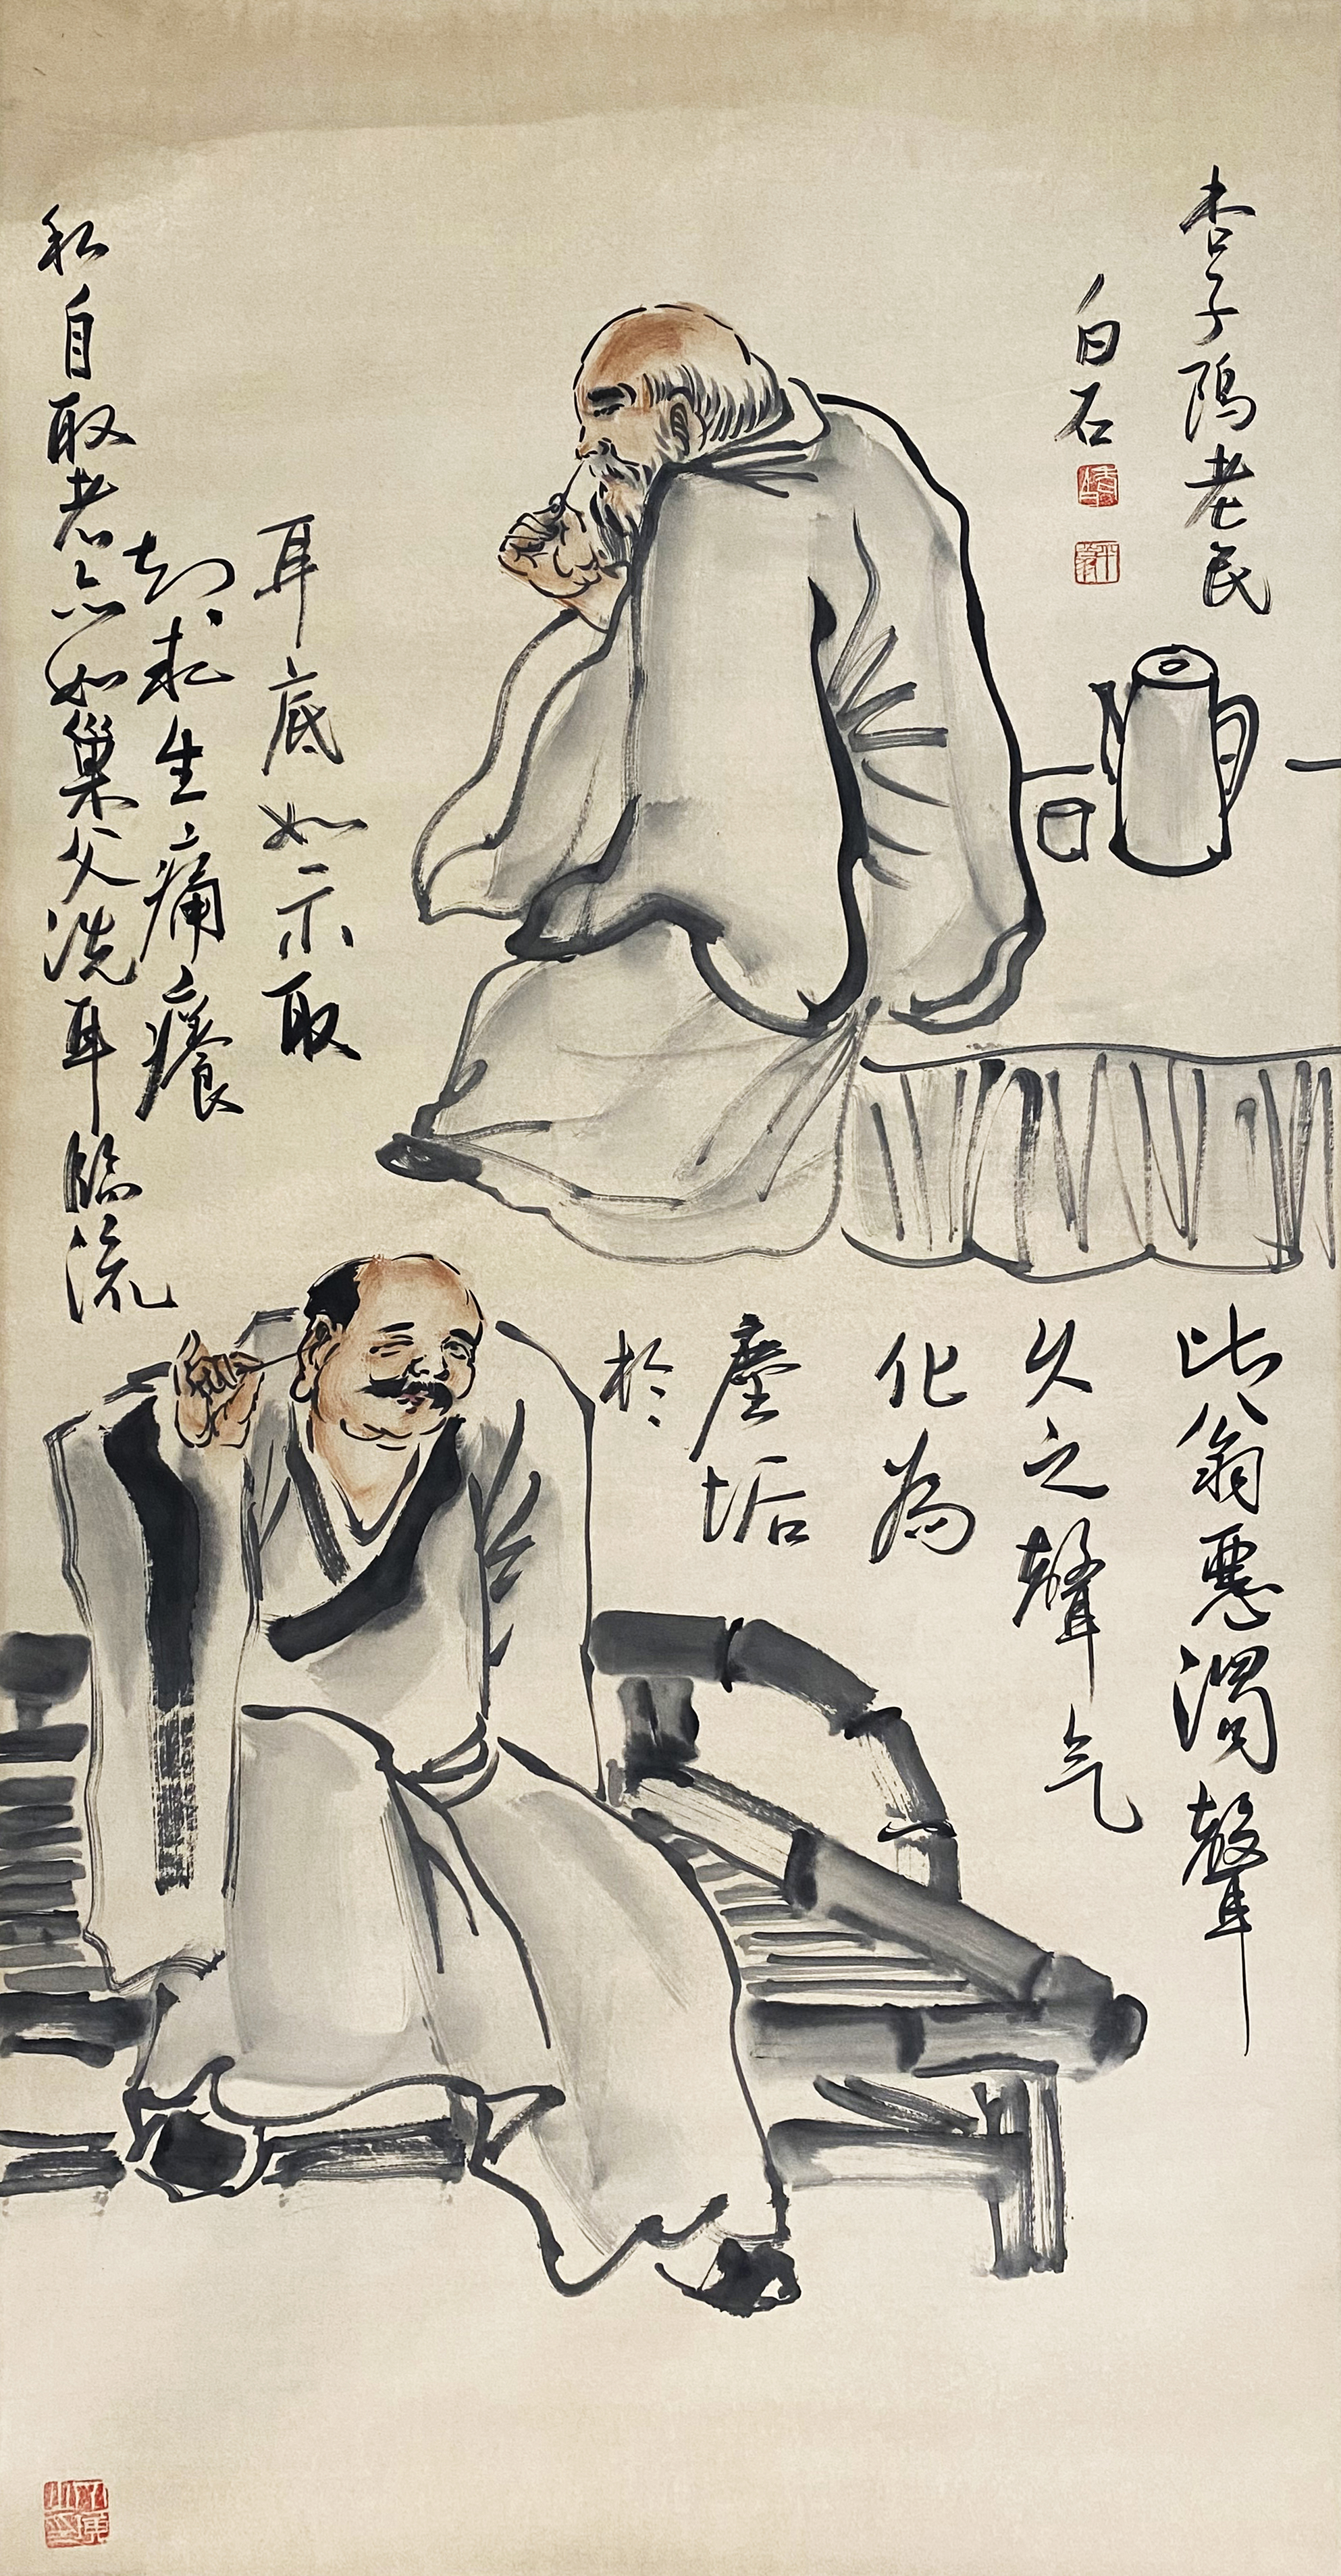 此翁惡濁聲
久之聲气
化為
塵垢
於
耳底如示取
求生痛癢
私自取老亦如巢父洗耳臨流
杏子隖老民
白石